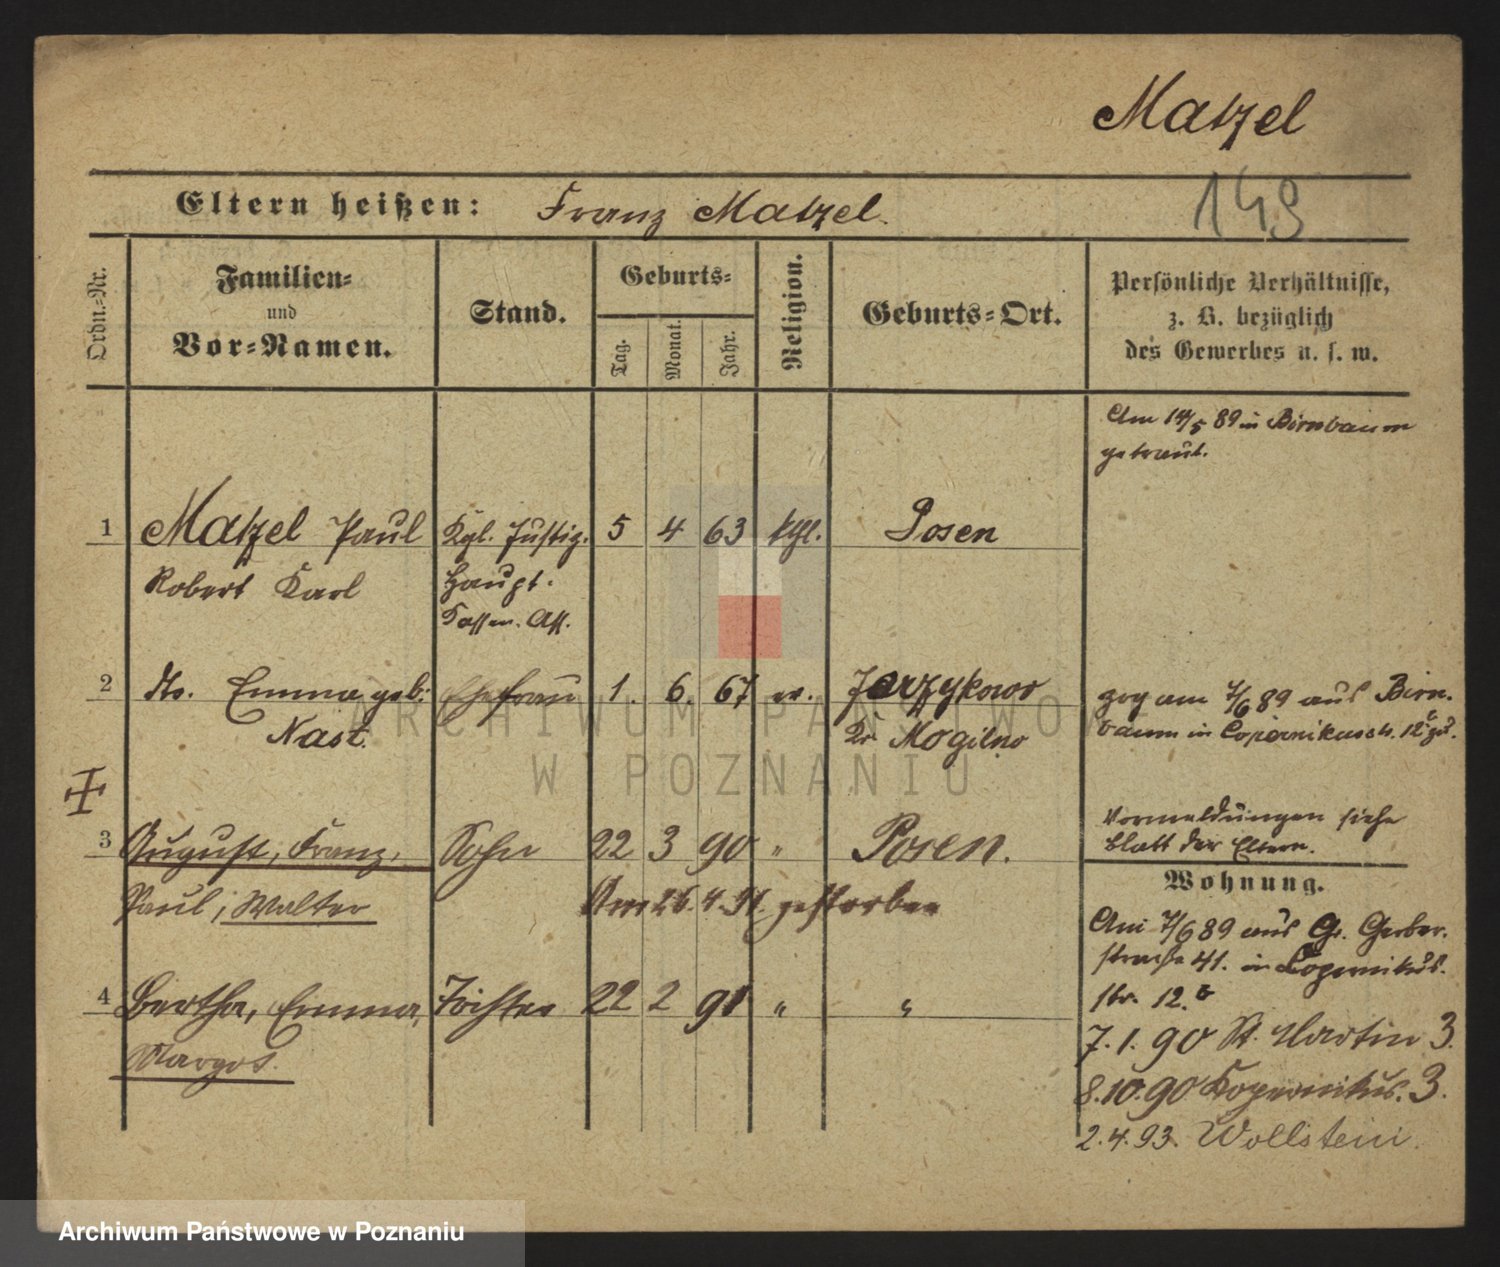 Matzel
149
Eltern heißen: Franz Matzel.
Ordn.-Nr.
Familien-
und
Vor-Namen.
Stand.
Geburts-
Tag.
Monat.
Jahr.
Religion.
Geburts-Ort.
Persönliche Verhältnisse,
z. B. bezüglich
des Gewerbes u. s. w.
Am 14/5 89 in Birnbaum
getraut.
1 Matzel Paul Kgl. Justiz. 5 4 63 kthl. Posen
Robert Karl Haupt.
Kassen. Ass.
2 dto. Emma geb: Ehefrau 1. 6. 67 ev. Jerzykowo
Nast. Kr. Mogilno
zog am 7/6 89 aus Birn-
baum in Copernikusstr. 12 zu.
3 August, Franz, Sohn 22 3 90 " Posen.
Paul, Walter Am 26.4.91. gestorben
Vormeldungen siehe
Blatt der Eltern.
Wohnung.
Am 7/6 89 aus Gr. Gerber-
strasse 41. in Copernikus-
str. 12.
4 Bertha, Emma, Tochter 22 2 91 " "
Margot.
7.1.90 St. Martin 3.
8.10.90 Kopernikus. 3.
2.4.93. Wollstein.
ARCHIWUM PAŃSTWOWE
W POZNANIU
Archiwum Państwowe w Poznaniu